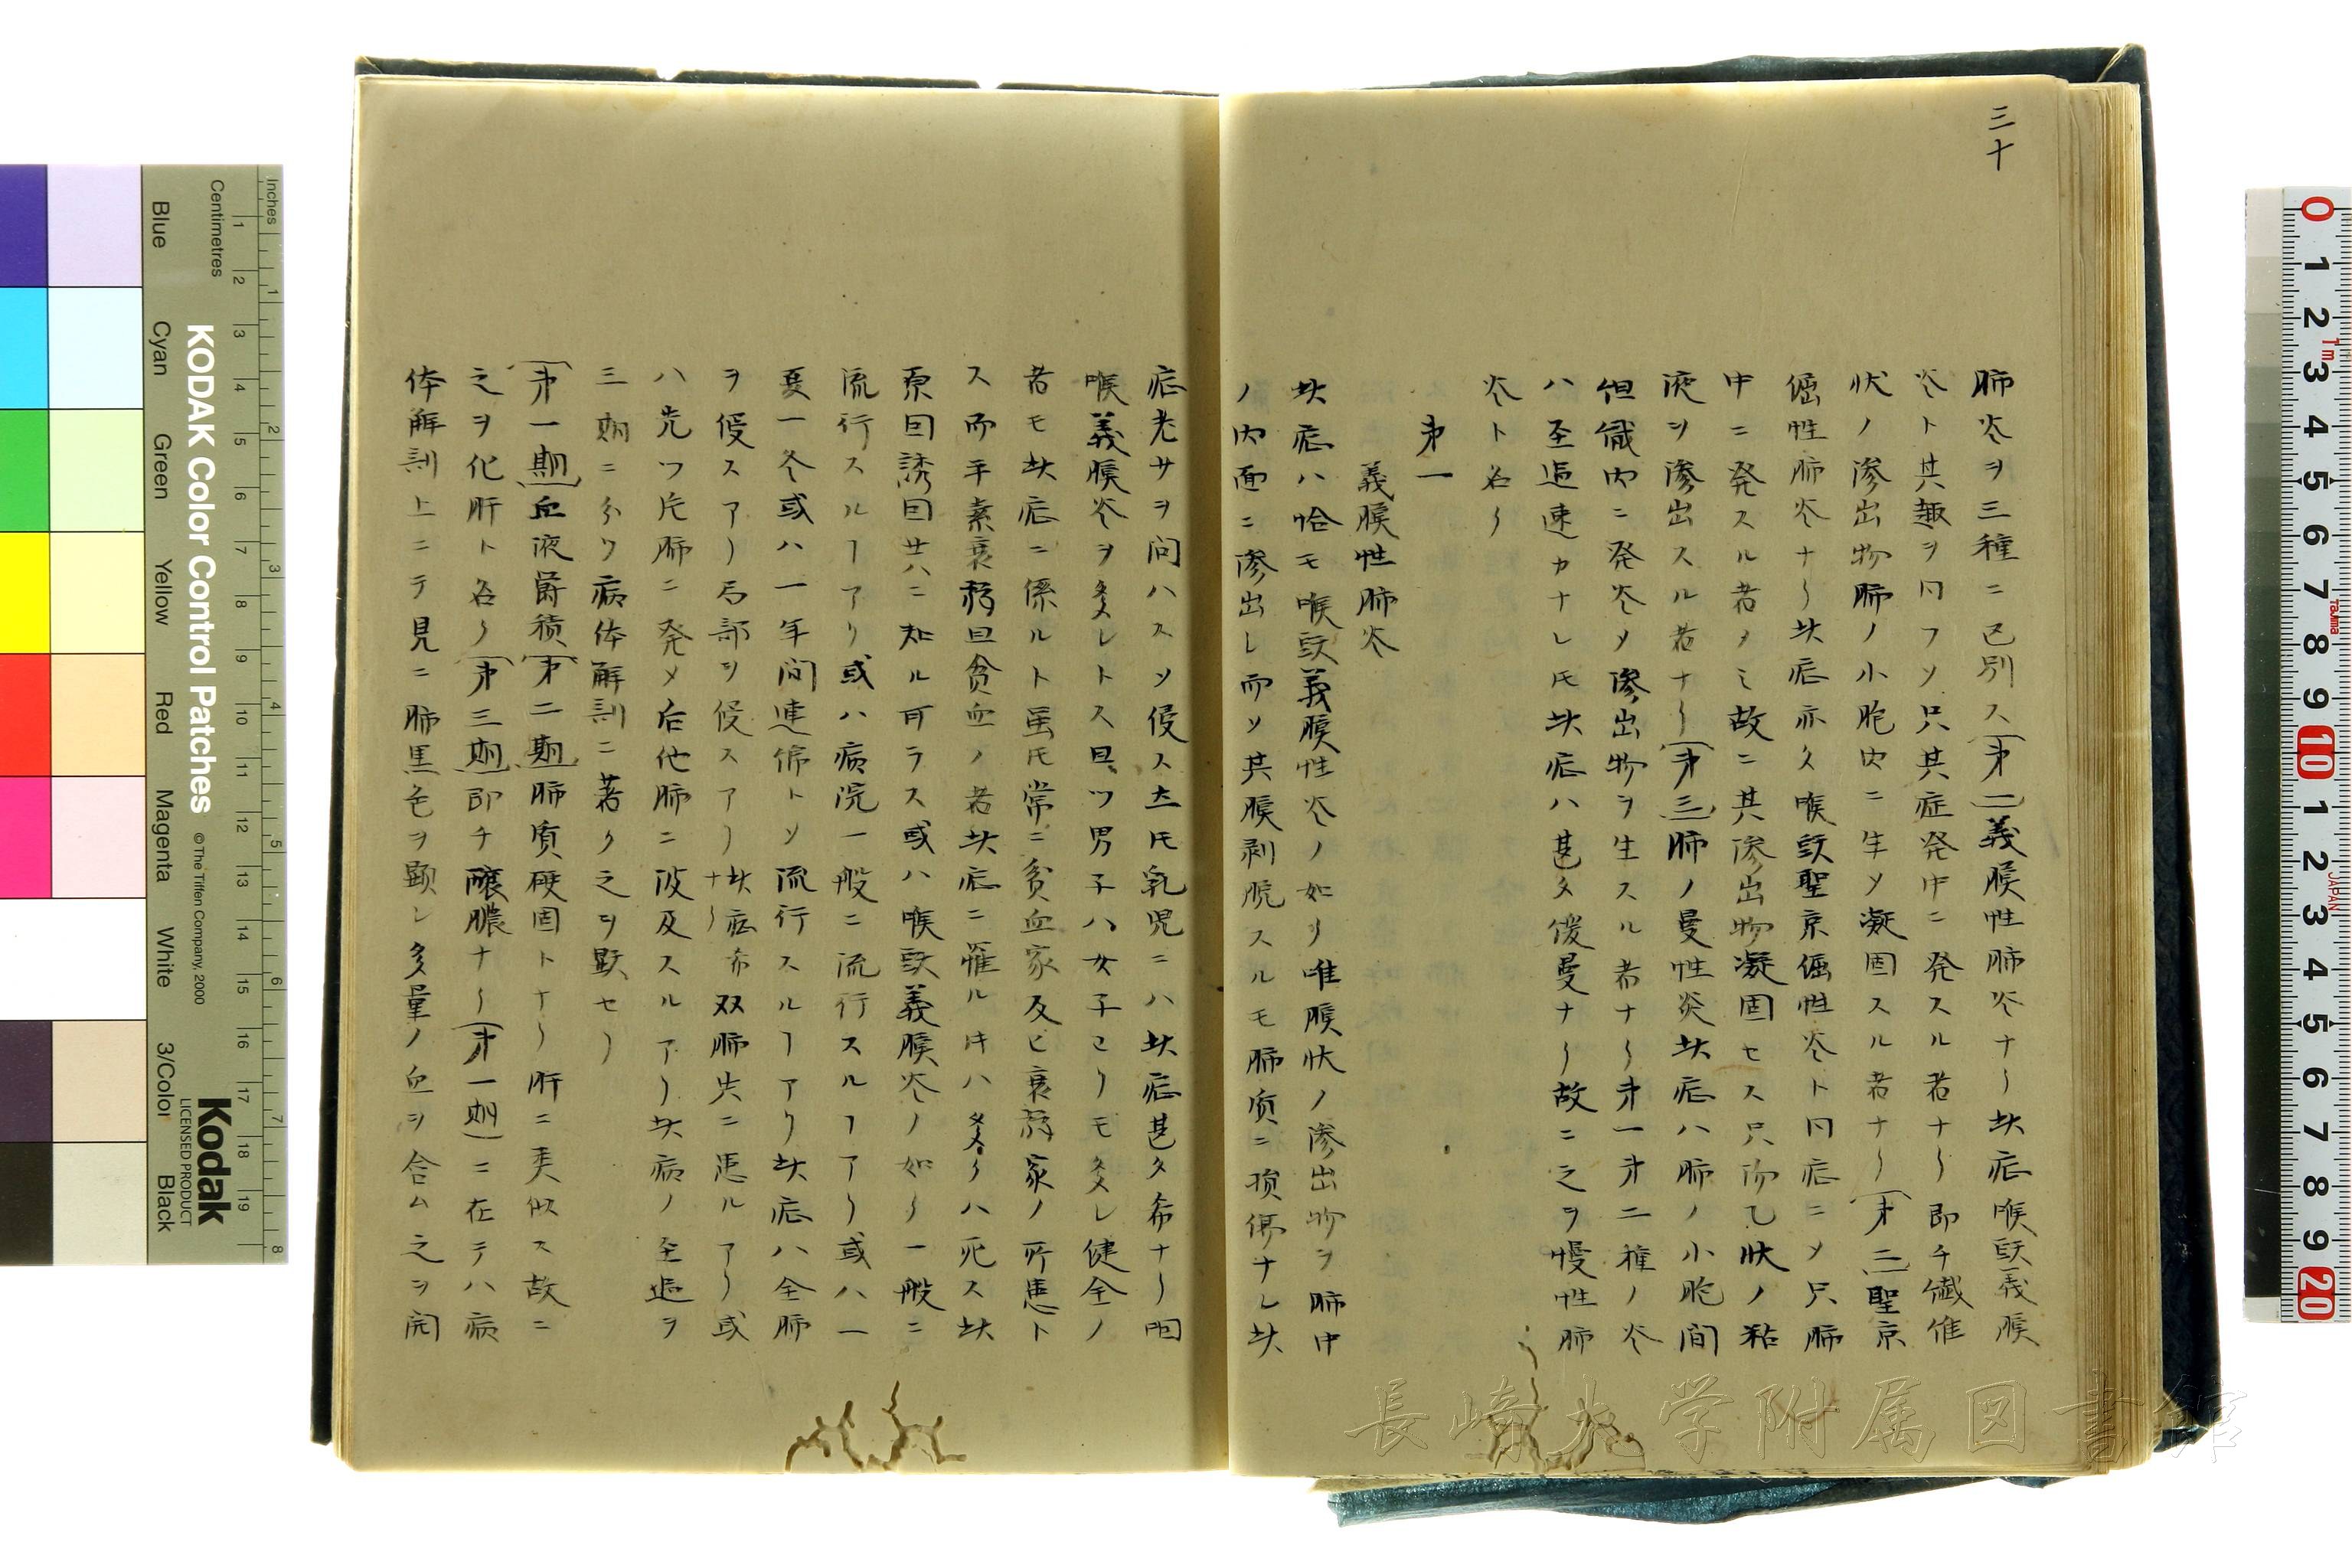 三十
肺炎ヲ三種ニ区別ス(第一)義膜性肺炎ナリ此症喉頭義膜
炎ト其趣ヲ同フソ只其症発中ニ発スル者ナリ即チ繊維
状ノ滲出物肺ノ小胞内ニ生メ凝固スル者ナリ(第二)聖京
倔性肺炎ナリ此症亦久喉頭聖京倔性炎ト同症ニメ只肺
中ニ発スル者ノミ故ニ其滲出物凝固セス只
状ノ粘
液ヲ滲出スル者ナリ(第三)肺ノ曼性炎此症ハ肺ノ小胞間
但織内ニ発炎メ滲出物ヲ生スル者ナリ第一第二種ノ炎
ハ至迅速カナレ𪜈此症ハ甚タ緩曼ナリ故ニ之ヲ慢性肺
炎ト名ク
第一
義膜性肺炎
此症ハ恰モ喉頭義膜性炎ノ如ク唯膜状ノ滲出物ヲ肺中
ノ内面ニ滲出し而ソ其膜剥脱スルモ肺質ニ損傷ナし此
症老少ヲ問ハスソ侵ス𪜈乳児ニハ此症甚タ希ナリ
喉義膜炎ヲ多しトス且ツ男子ハ女子ヨリモ多し健全ノ
者モ此症ニ係ルト虽𪜈常ニ貧血家及ヒ衰弱家ノ所患ト
ス而平素衰弱且貧血ノ者此症ニ罹ル𪜈ハ多クハ死ス此
原因誘因共ニ知ル可ラス或ハ喉頭義膜炎ノ如ク一般ニ
流行スルヿアリ或ハ病院一般ニ流行スルヿアリ或ハ一
夏一冬或ハ一年間連
トソ流行スルヿアリ此症ハ全肺
ヲ侵スアリ局部ヲ侵スアリ此症希ナリ双肺共ニ患ルアリ或
ハ先ツ片肺ニ発メ后他肺ニ波及スルアリ此病ノ至迅ヲ
三期ニ分ツ病体解剖ニ著ク之ヲ顕セリ
(第一期)血液欝積(第二期)肺質硬固トナリ肝ニ類似ス故ニ
之ヲ化肝ト名ク(第三期)即チ醸膿ナリ(第一期)ニ在テハ病
体解剖上ニテ見ニ肺黒色ヲ顕し多量ノ血ヲ含ム之ヲ開
KODAK Color Control Patches
© The Tiffen Company, 2000
Kodak
LICENSED PRODUCT
Inches
Centimetres
Blue
Cyan
Green
Yellow
Red
Magenta
White
3/Color
Black
1m
Tajima
JAPAN
長崎大学附属図書館